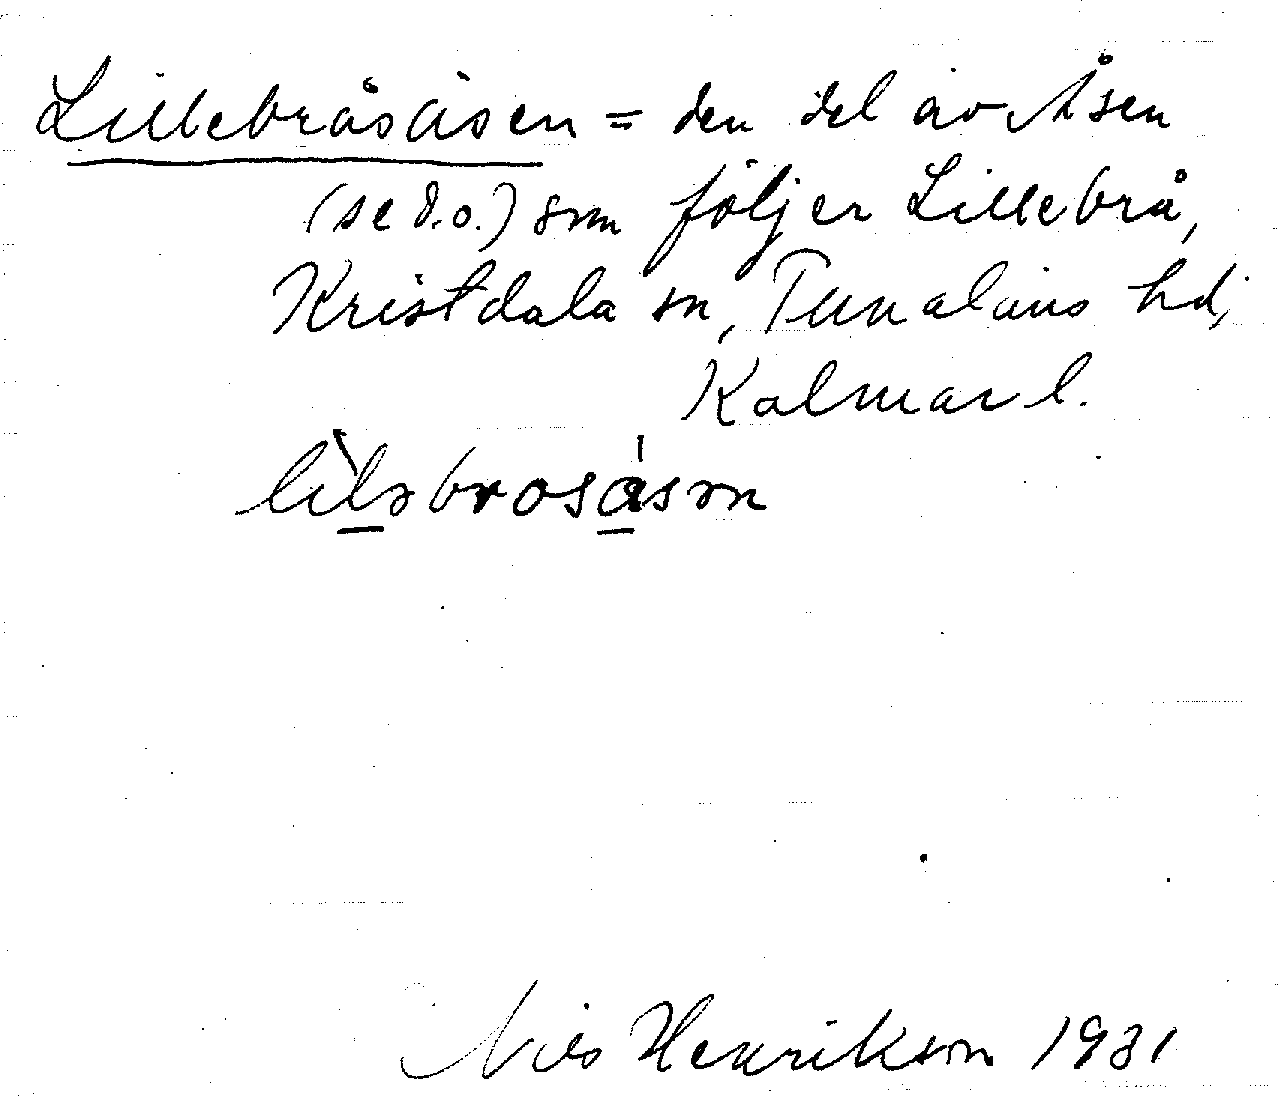 Lillebråsåsen = den del av Åsen
(se d.o.) som följer Lillebrå,
Kristdala sn, Tunaläns hd,
Kalmar l.
lìləbrosåsən
Nils Henrikson 1931